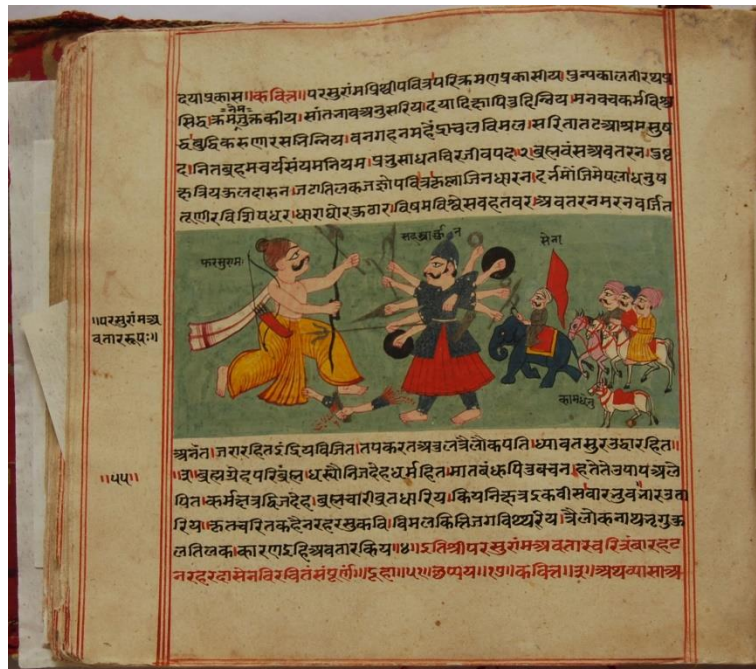 दयाप्रकास॥कवित्त॥परसुरांमप्रिथीपवित्रपरिक्रमणप्रकासीय।पुन्यकालतीरथप्र
सिद्ध।क्रमनेमजुक्तकीय।सांतनावअनुसरिय।दयादि मनवचकर्मविश्व
बुद्धिकरुणारस वनगहनमहेंद्राचलविमल।सरितातटआश्रमसुष
द।नितब्रह्मचर्यसंयमनियम।प्रनुसाधतचिरजीवपद।२।ब्रह्मवंसअवतरन।
क्षत्रियकुलदारुन।जटातिलकजज्ञोपवित्रकृस्नाजिनधारन।दर्नमौंजिमेषलाधनुष
त्तूणीरविशिषधर।धाराघोरकुठार।विषमविश्वेसवहतवर।अवतरनमरनवर्जित
फरसुरामः
सहस्रार्जुन
सेना
कामधेनु
॥परसुरांमअ
वताररूपः॥
अनंत।जरारहितइंद्रियविजित।तपकरतअचलत्रैलोकपति।ध्यावतसुरउद्धारहित॥
॥३।ब्रह्मग्रेहपरिब्रंह्म।धस्यौनिजदेहधर्महित।मातबंधपितुबचन।हतेनेउपापअले
॥५५॥
पित।कर्मक्षत्रद्विजदेह।ब्रह्मचारीव्रतधारिय।कियनिक्षत्रइकवीसवारनुवनारउता
रिय।कृतचरितकहैनरहरसुकवि।विमलकित्तिजगविथ्थरीय।त्रैलोकनाथनृगुकु
लतिलक।कारणइहिअवतारकिय॥४॥इतिश्रीपरसुरांमअवतारचरित्रंबारहट
नरहरदासेनविरचितंसंपूर्णं॥दूहा॥५८॥छप्पय॥१७॥कवित्त॥३॥अथव्यासाअ